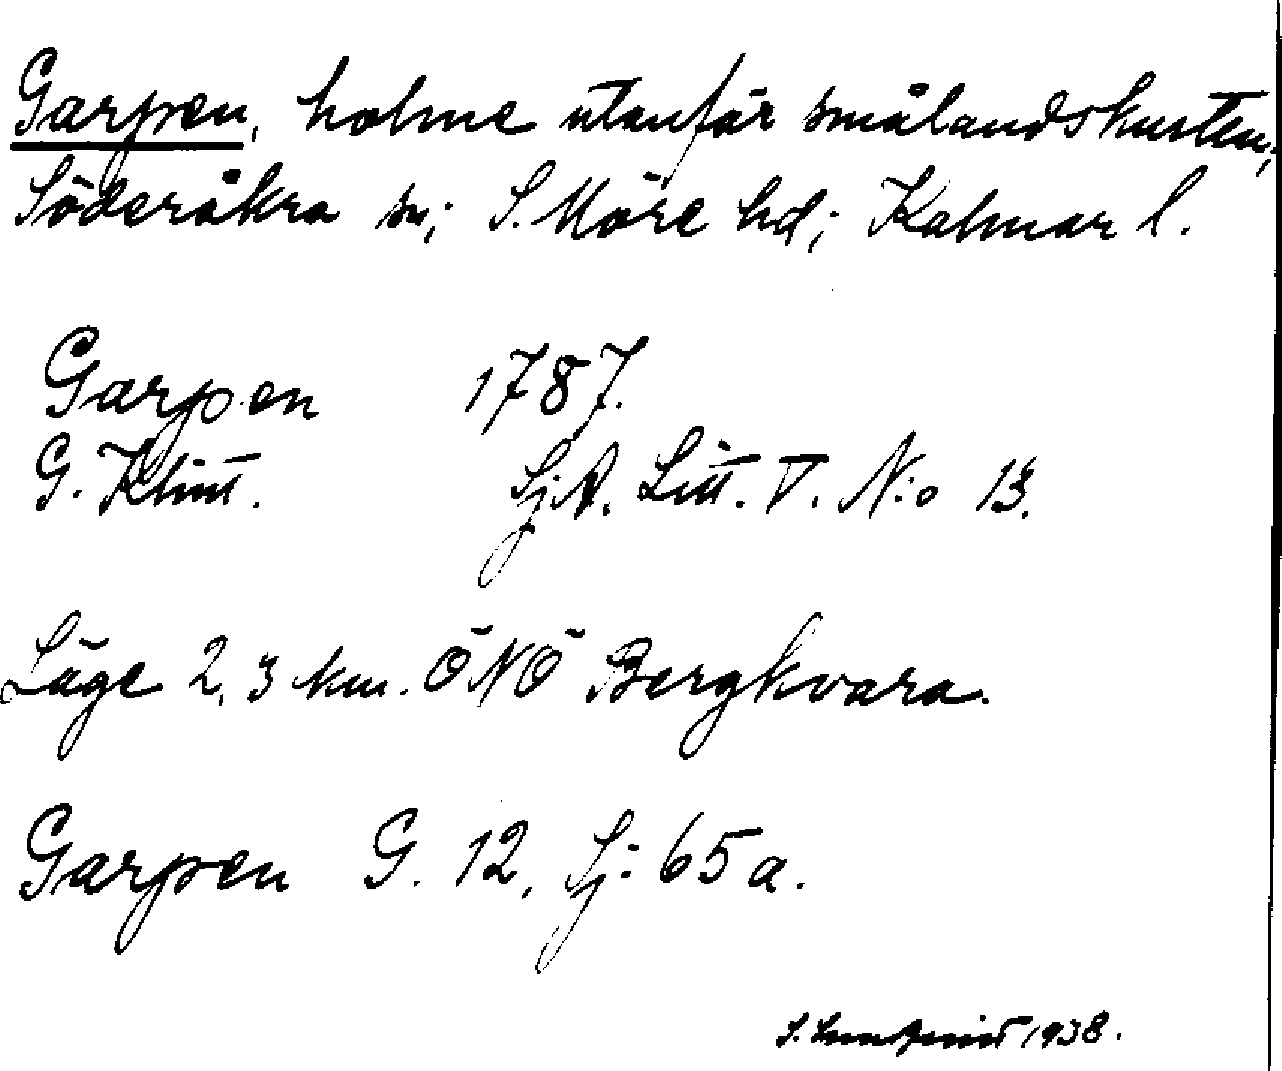 Garpen, holme utanför smålandskusten;
Söderåkra sn; S. Möre hd; Kalmar l.
Garpen 1787.
G. Klint. Sj.A. Litt. V. N:o 13.
Läge 2,3 km. ÖNÖ Bergkvara.
Garpen G. 12, Sj: 65a.
S. 1938.